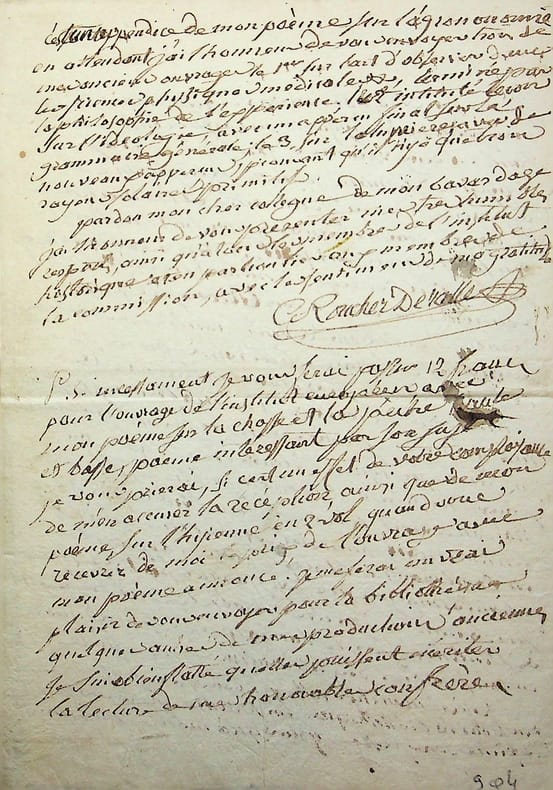 c'est un appendice de mon poème sur l'agronomie
en attendant j'ai l'honneur de vous envoyer trois de
mes anciens ouvrages le 1er sur l'art d'observer dans
les sciences physiques médicales, terminé par
la philosophie de l'expérience le 2e intitulé
sur l'idéologie avec un apperçu final sur la
grammaire générale; le 3 sur la lumière avec de
nouveaux apperçus prouvant qu'il n'y a que trois
rayons solaires primitifs.
pardon mon cher colegue de mon bavardage
j'ai l'honneur de vous présenter mes tres humbles
respects, ainsi qu'à tous les membres de l'institut
historique et en particulier aux membres de
la commission, avec les sentimens de ma gratitude
Roucher Deratte
P. S. incessament je vous ferai passer 12 francs
pour l'ouvrage de l'institut européen avec
mon poème sur la chasse et la pèche
et basse, poème interessant par son sujet
je vous prierai, si c'est un effet de votre complaisance
de m'en accuser la reception ainsi que de mon
poème sur l'higienne en 2 vol quand vous
recevrez de moi le prix de l'ouvrage avec
mon poème annoncé; je me ferai un vrai
plaisir de vous envoyer pour la bibliothèque
quelques unes de mes productions anciennes
je suis bien flatté qu'elles puissent meriter
la lecture de mes honorables confrères
984